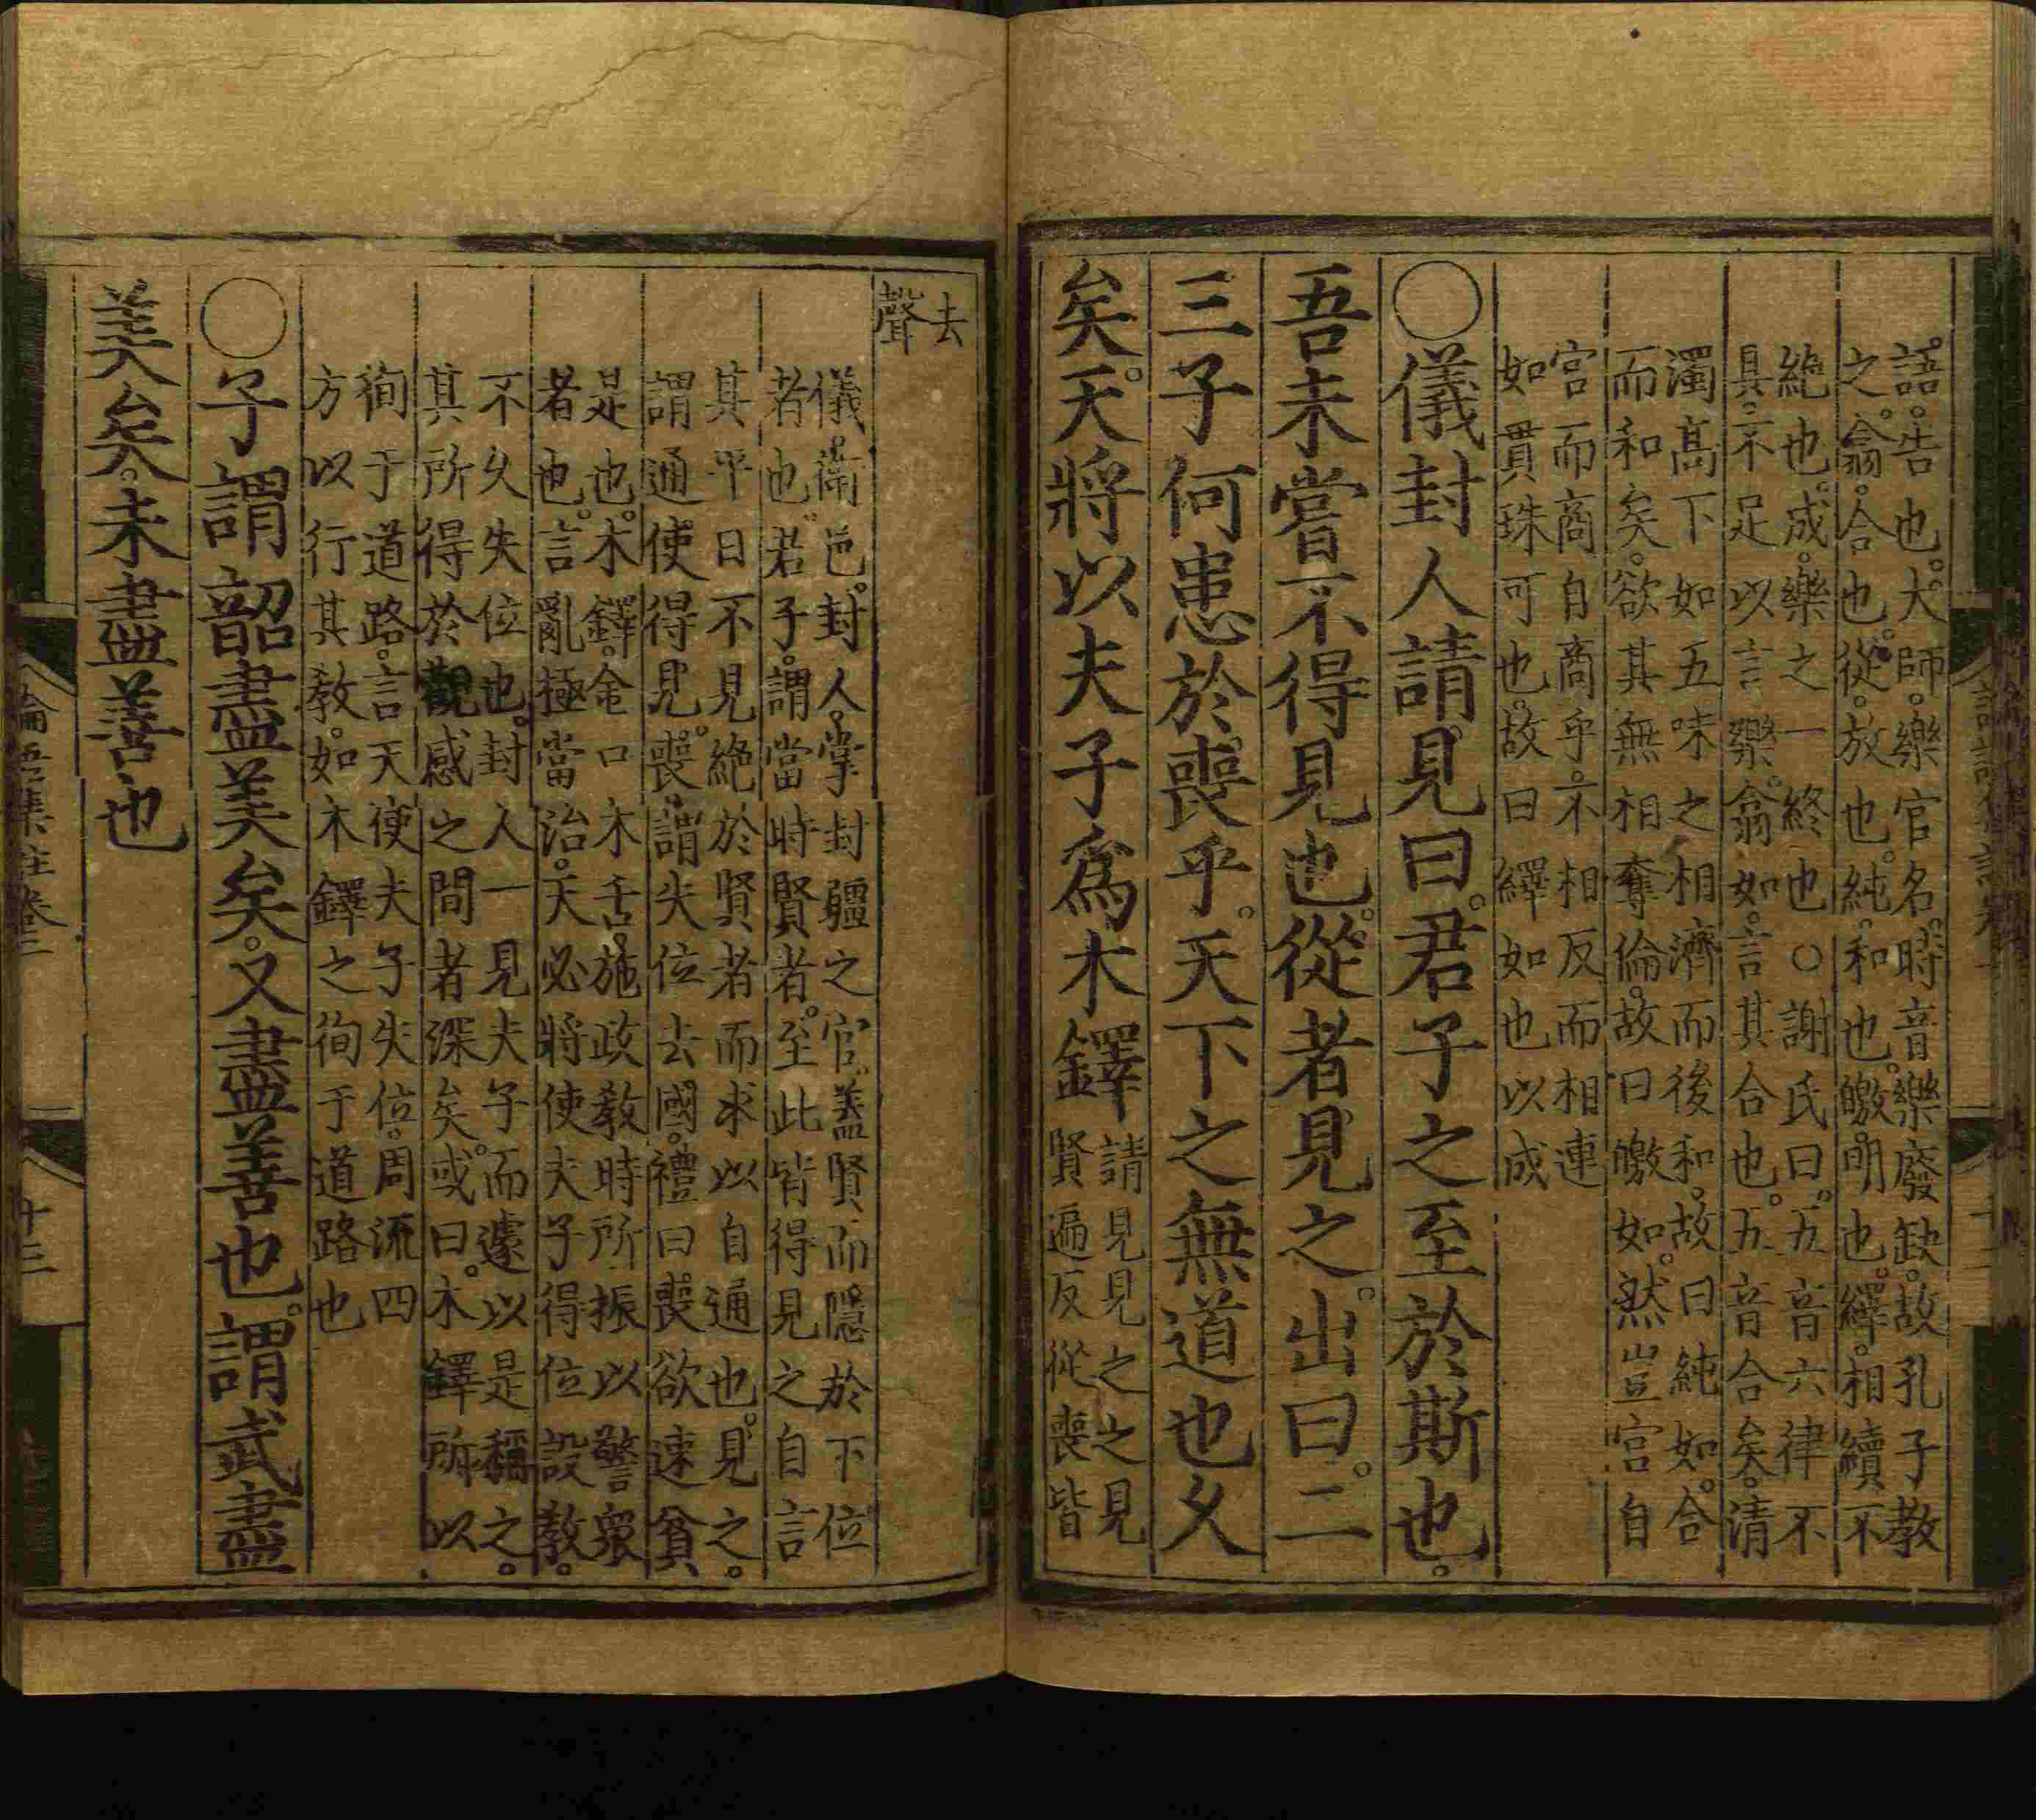 語。告也。大師。樂官名。時音樂廢缺。故孔子教
之。翕。合也。從。放也。純。和也。皦。明也。繹。相續不
絶也。成。樂之一終也○謝氏曰。五音六律不
具。不足以言樂。翕如。言其合也。五音合矣。清
濁高下如五味之相濟而後和。故曰純如。合
而和矣。欲其無相奪倫。故曰皦如。然豈宮自
宮而商自商乎。不相反而相連
如貫珠可也。故曰繹如也以成
○儀封人請見曰。君子之至於斯也。
吾未嘗不得見也。從者見之。出曰。二
三子何患於喪乎。天下之無道也久
矣。天將以夫子爲木鐸
請見見之之見
賢遍反從喪皆
去
聲
儀。衞邑。封人。掌封疆之官。蓋賢而隱於下位
者也。君子。謂當時賢者。至此皆得見之自言
其平日不見絶於賢者而求以自通也。見之。
謂通使得見。喪。謂失位去國。禮曰喪欲速貧
是也。木鐸。金口木舌。施政教時所振以警衆
者也。言亂極當治。天必將使夫子得位設教。
不久失位也。封人一見夫子而遽以是稱之。
其所得於觀感之間者深矣。或曰。木鐸所以
徇于道路。言天使夫子失位。周流四
方以行其教。如木鐸之徇于道路也
○子謂韶盡美矣。又盡善也。謂武盡
美矣。未盡善也
論語集註卷二
十三